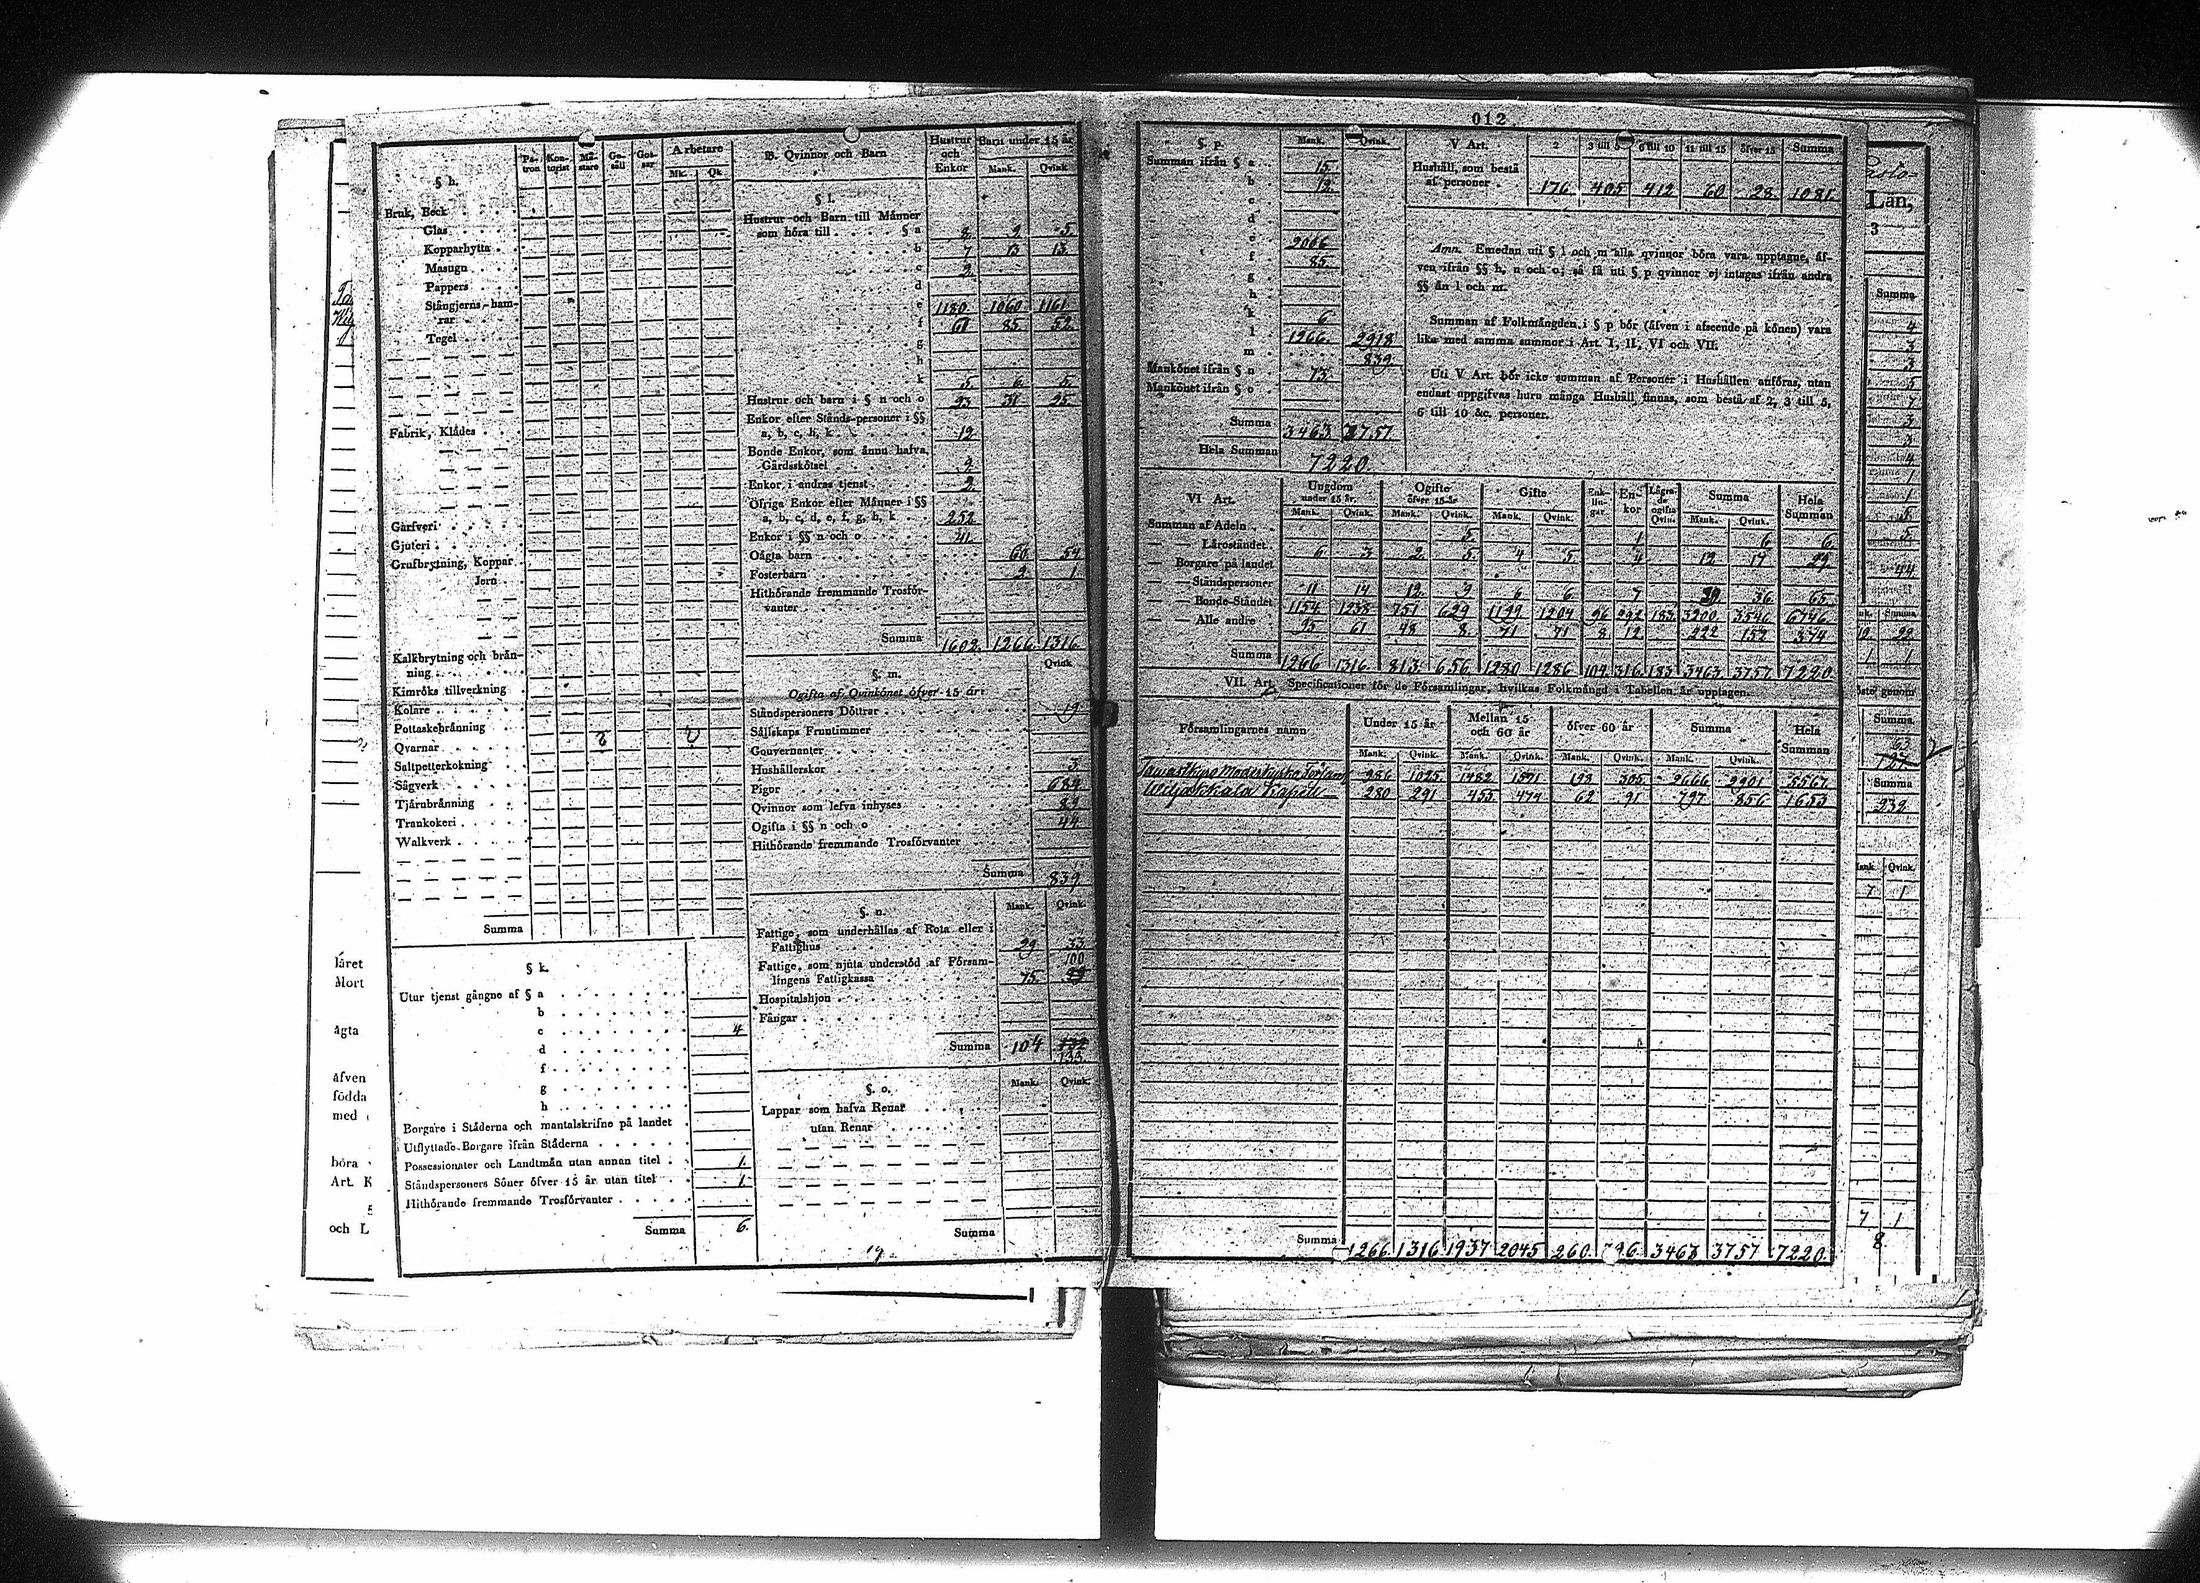 012
§ h.
Pa-tron Kon-torist Mä-stare Ge-säll Gos-sar Arbetare
Mk. Qk
Bruk, Beck
Glas
Kopparhytta
Masugn
Pappers
Stångjerns-ham-
rar
Tegel
Fabrik, Klädes
Garfveri
Gjuteri
Grufbrytning, Koppar
Jern
Kalkbrytning och brän-
ning
Kimröks tillverkning
Kolare
Pottaskebränning
Qvarnar 2 2
Saltpetterkokning
Sågverk
Tjärubränning
Trankokeri
Walkverk
Summa
§ k.
Utur tjenst gångne af § a
b
c 4
d
f
g
h
Borgare i Städerna och mantalskrifne på landet
Utflyttade Borgare ifrån Städerna
Possessionater och Landtmän utan annan titel 1.
Ståndspersoners Söner öfver 15 år utan titel 1.
Hithörande fremmande Trosförvanter
Summa 6.
B. Qvinnor och Barn Hustrur och Enkor Barn under 15 år
Mank. Qvink.
§ l.
Hustrur och Barn till Männer
som höra till § a 8 2 5
b 7 13 13.
c 2.
d
e 1180. 1060 1161
f 61 85. 52.
g
h
k 5 6 5
Hustrur och barn i § n och o 23 31 25.
Enkor efter Stånds-personer i §§
a, b, c, h, k 12
Bonde Enkor, som ännu hafva
Gårdsskötsel 9.
Enkor i andras tjenst 2.
Öfriga Enkor efter Männer i §§
a, b, c, d, e, f, g, h, k 252
Enkor i §§ n och o 41.
Oägta barn 60. 54
Fosterbarn 2 1.
Hithörande fremmande Trosför-
vanter
Summa 1602. 1266. 1316.
§. m. Qvink
Ogifta af Qvinkönet öfver 15 år:
Ståndspersoners Döttrar 19
Sällskaps Fruntimmer
Gouvernanter
Hushållerskor 3
Pigor 684
Qvinnor som lefva inhyses 89
Ogifta i §§ n och o 44
Hithörande fremmande Trosförvanter
Summa 839
§. n. Mank. Qvink.
Fattige, som underhållas af Rota eller i
Fattighus 29 33
Fattige, som njuta understöd af Försam- 100
lingens Fattigkassa 75.
Hospitalshjon
Fångar
Summa 104
133
§. o. Mank. Qvink.
Lappar som hafva Renar
utan Renar
Summa
§ p. Mank. Qvink.
Summan ifrån § a 15.
b 12.
c
d
e 2006
f 85.
g
h
k 6
l 1266. 2918
m 839.
Mankönet ifrån § n 73.
Mankönet ifrån § o
Summa 3463. 3757.
Hela Summan 7220.
V Art. 2 3 till 5 6 till 10 11 till 15 öfver 15 Summa
Hushåll, som bestå
af personer 176. 405 412 60 28. 1081.
Anm. Emedan uti § l och m alla qvinnor böra vara upptagne, äf-
ven ifrån §§ h, n och o; så få uti § p qvinnor ej intagas ifrån andra
§§ än l och m.
Summan af Folkmängden i § p bör (äfven i afseende på könen) vara
lika med samma summor i Art. I, II, VI och VII.
Uti V Art. bör icke summan af Personer i Hushållen anföras, utan
endast uppgifvas huru många Hushåll finnas, som bestå af 2, 3 till 5,
6 till 10 &c. personer.
VI Art. Ungdom under 15 år. Ogifte öfver 15 år Gifte Enk-lin-gar En-kor Lägra-de ogifta Qvin. Summa Hela Summan
Mank. Qvink. Mank. Qvink. Mank. Qvink. Mank. Qvink.
Summan af Adeln 5. 1 6 6
— — Läroståndet 6 3 2. 5. 4 5. 4 12 17 29
— — Borgare på landet
— — Ståndspersoner 11 14 12. 9 6 6. 7 29 36 65.
— — Bonde-Ståndet 1154 1238 751 629 1199 1204 96 292 183. 3200. 3546 6746.
— — Alle andre 95 61 48 8. 71 71 8 12 222 152 374
Summa 1266 1316. 813. 656. 1280 1286 104 316. 183 3463. 3757. 7220.
VII. Art. Specificationer för de Församlingar, hvilkas Folkmängd i Tabellen är upptagen.
Församlingarnes namn Under 15 år Mellan 15 och 60 år öfver 60 år Summa Hela Summan
Mank. Qvink. Mank. Qvink. Mank. Qvink. Mank. Qvink.
Tavastkyro Moderkyrko Församl. 986 1025. 1482 1571 198 305. 2666 2901 5567.
Wiljakkala Kapell 280 291 455. 474 62 91 797 856 1653
Summa 1266. 1316. 1937 2045 260. 396. 3463 3757 7220.
Län,
3
Summa
4
3
3
5
7
3
3
4
1
1
5
5
44
Summa
22
1 1
Summa
Summa
232
Mank Qvink.
7 1
7 1
8
läret
Mort
ägta
äfven
födda
med
böra
Art. K
och L